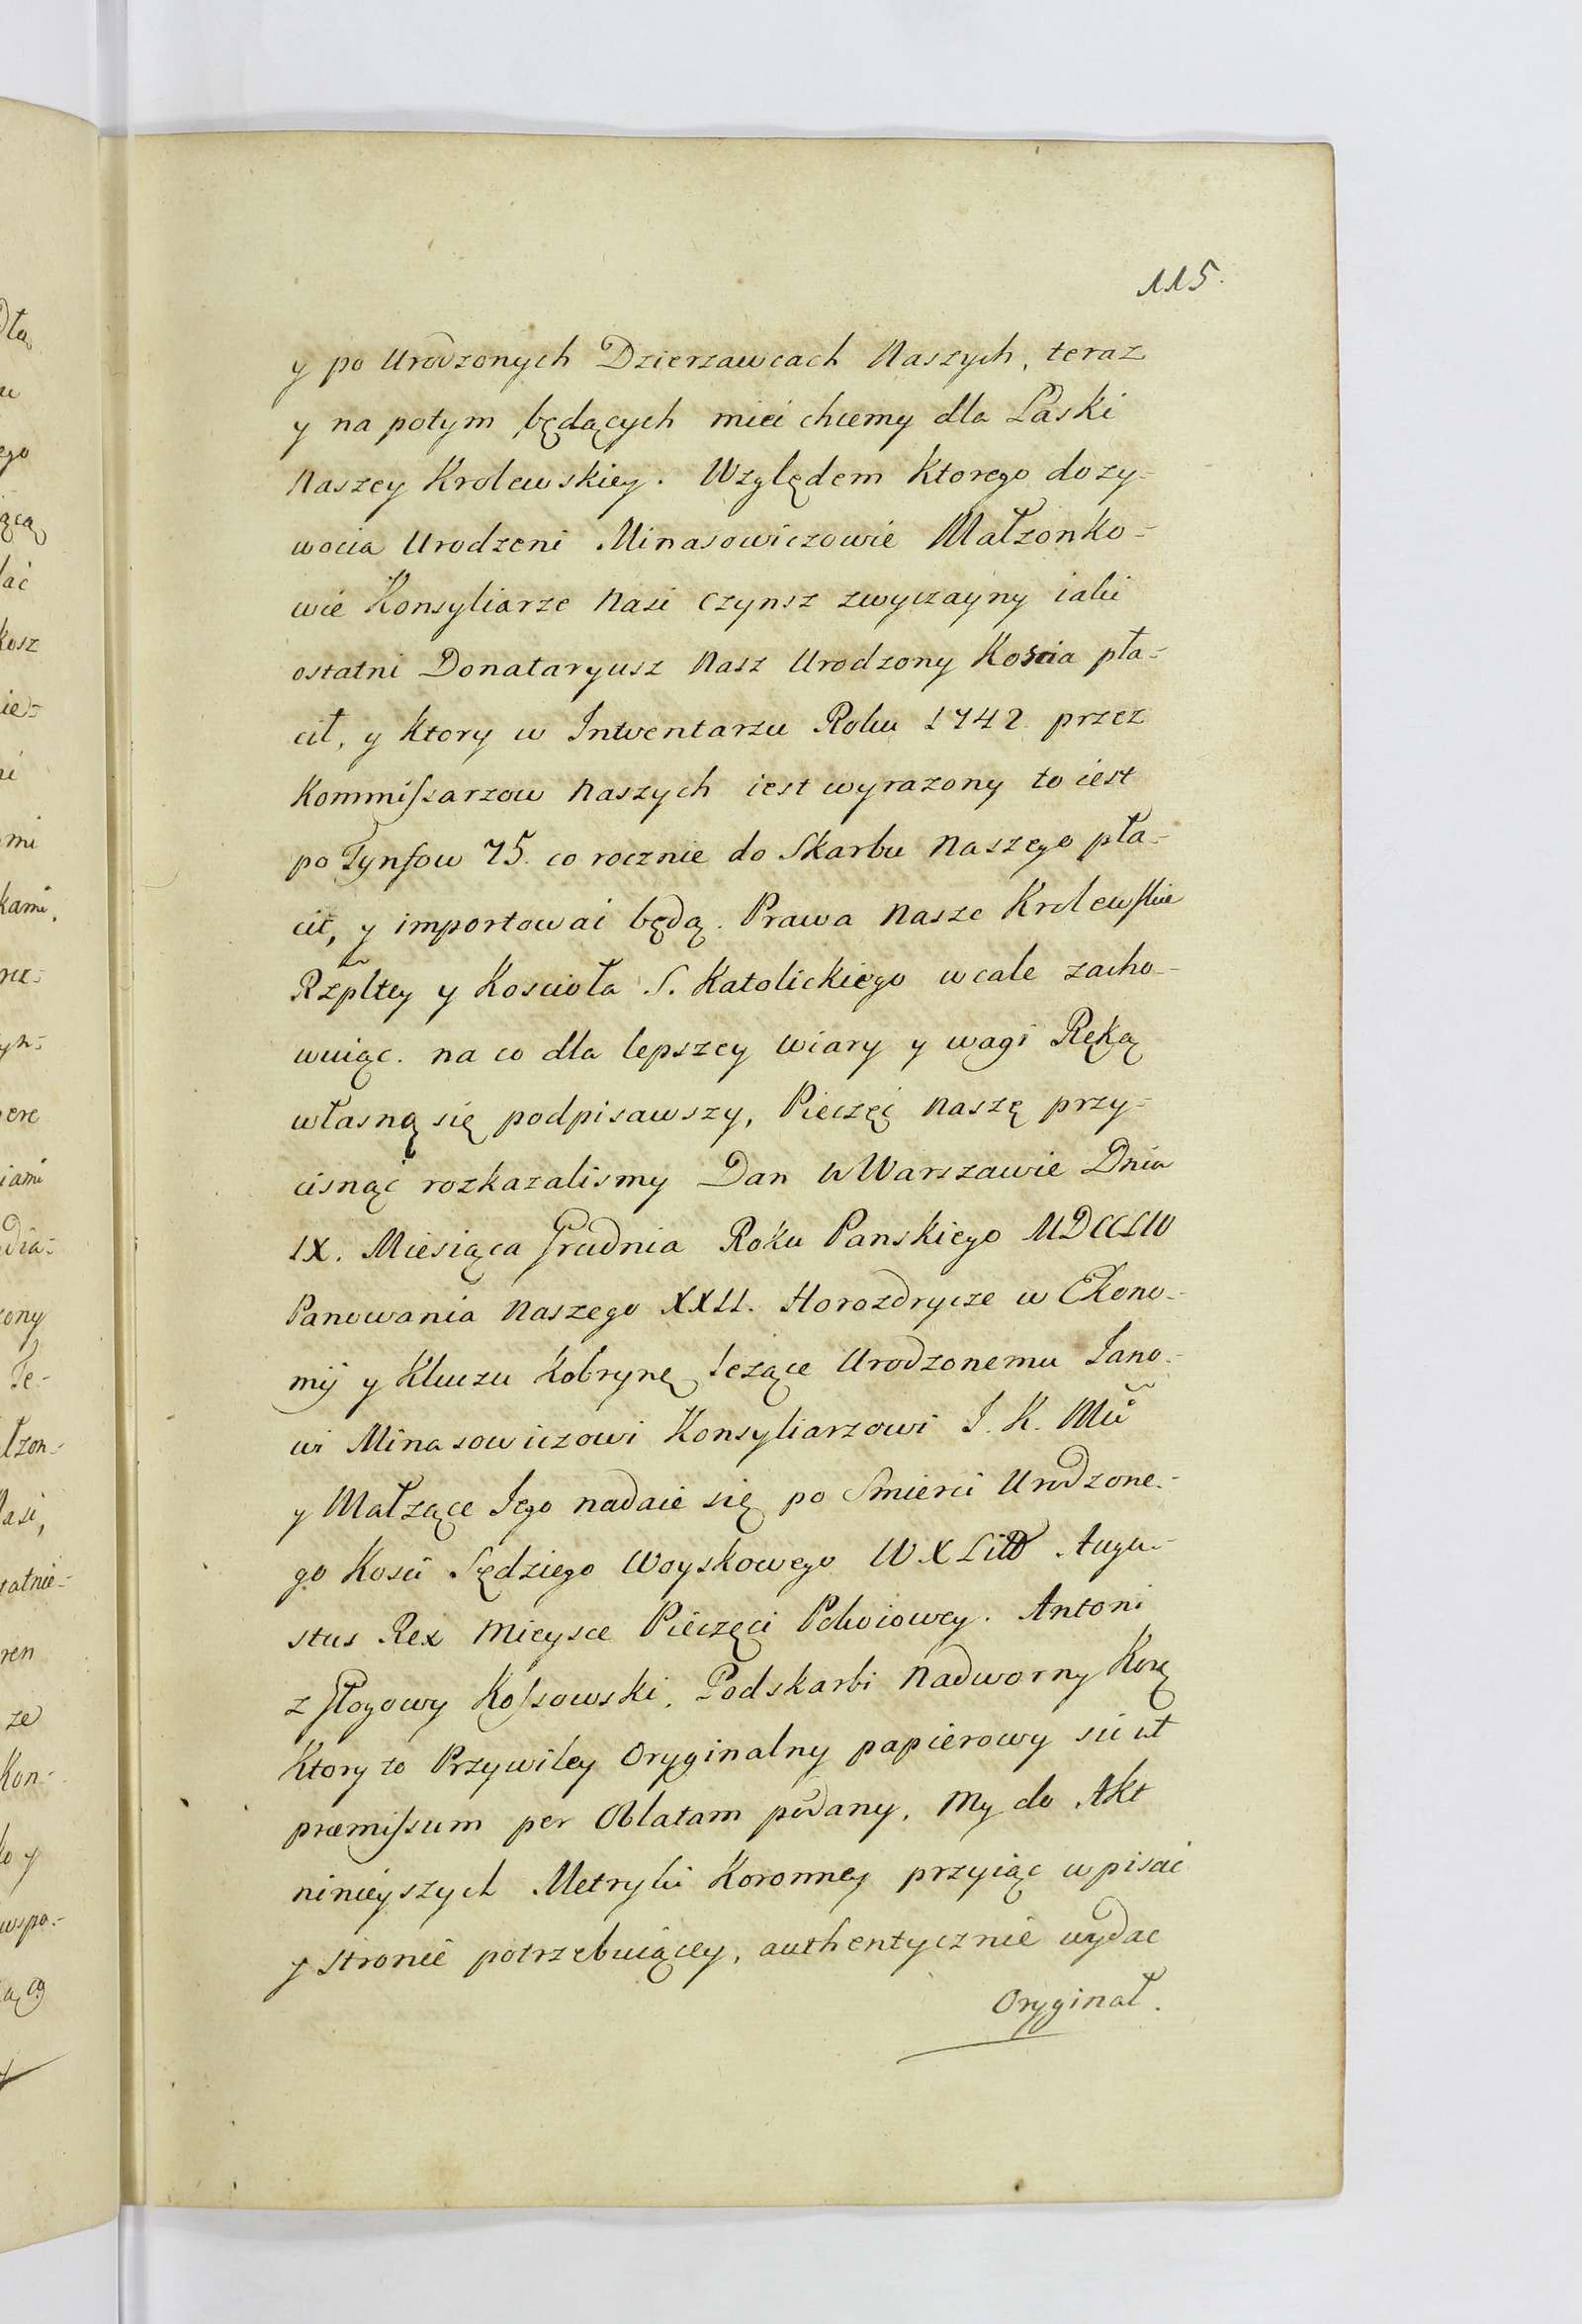 115.
y po Urodzonych Dzierzawcach Naszych, teraz
y na potym będących mieć chcemy dla Łaski
Naszey Krolewskiey. Względem Ktorego dozy-
wocia Urodzeni Minasowiczowie Małzonko-
wie Konsyliarze Nasi Czynsz zwyczayny iaki
ostatni Donataryusz Nasz Urodzony Koscia pła-
cił, y Ktory w Intwentarzu Roku 1742 przez
Kommissarzow Naszych iest wyrazony to iest
po Tynfow 75. co rocznie do Skarbu Naszego pła-
cić, y importować będą. Prawa Nasze Krolewskie
Rzpltey y Koscioła S. Katolickiego wcale zacho-
wuiąc. na co dla lepszey wiary y wagi Ręką
własną się podpisawszy, Pieczęć Naszę przy-
cisnąć rozkazalismy Dan w Warszawie Dnia
IX. Miesiąca Grudnia Roku Panskiego MDCCLIV
Panowania Naszego XXII. Horozdrycze w Ekono-
mij y Kluczu Kobrynę lezące Urodzonemu Iano-
wi Minasowiczowi Konsyliarzowi I. K. Mci
y Małzące Iego nadaie się po Smierci Urodzone-
go Kosci Sędziego Woyskowego W X Litt Augu-
stus Rex Mieysce Pieczęci Pokoiowey. Antoni
z Głogowy Kossowski, Podskarbi Nadworny Korę
Ktory to Przywiley Oryginalny papierowy sic ut
præmissum per Oblatam podany, My do Akt
ninieyszych Metryki Koronney przyiąc wpisać
y stronie potrzebuiącey, authentycznie wydac
Oryginał.